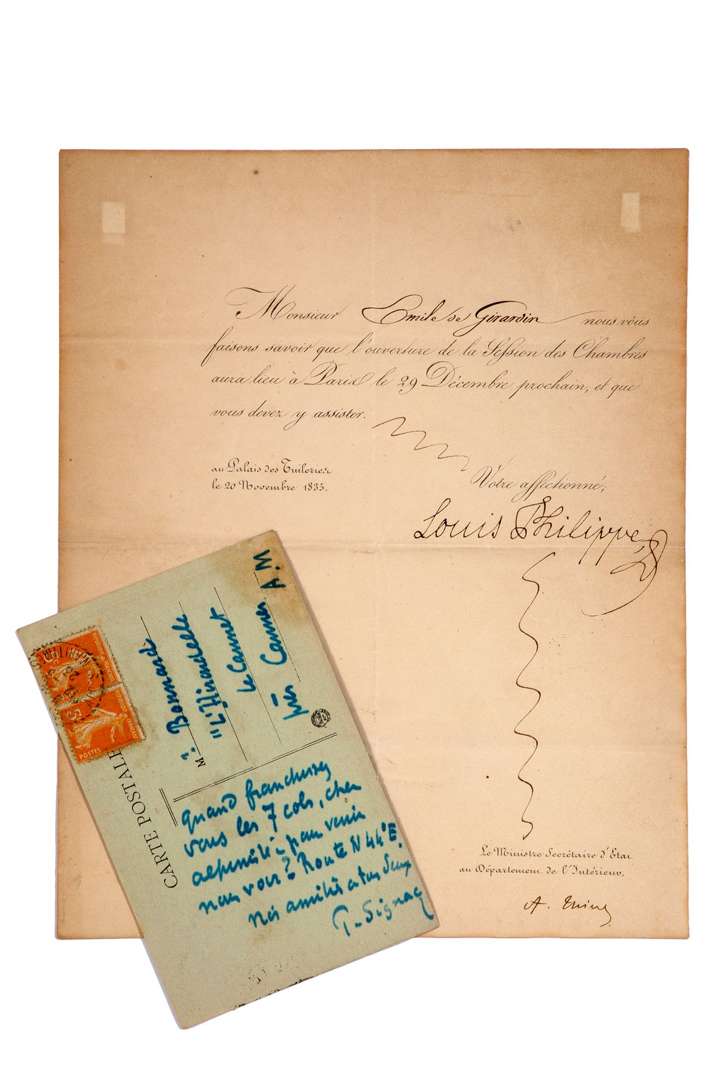 Monsieur Emile de Girardin nous vous
faisons savoir que l'ouverture de la Session des Chambres
aura lieu à Paris le 29 Décembre prochain, et que
vous devez y assister.
au Palais des Tuileries
le 20 Novembre 1835.
Votre affectionné,
Louis Philippe
Le Ministre Secrétaire d'Etat
au Département de l'Intérieur,
A.
CARTE POSTALE
POSTES
M. Bonnard
"L'Hirondelle
le Cannet
près Cannes A.M
quand franchirez
vous les 7 cols, cher
alpiniste pour venir
nous voir? Route N 44
nos amitiés à tous deux
P. Signac